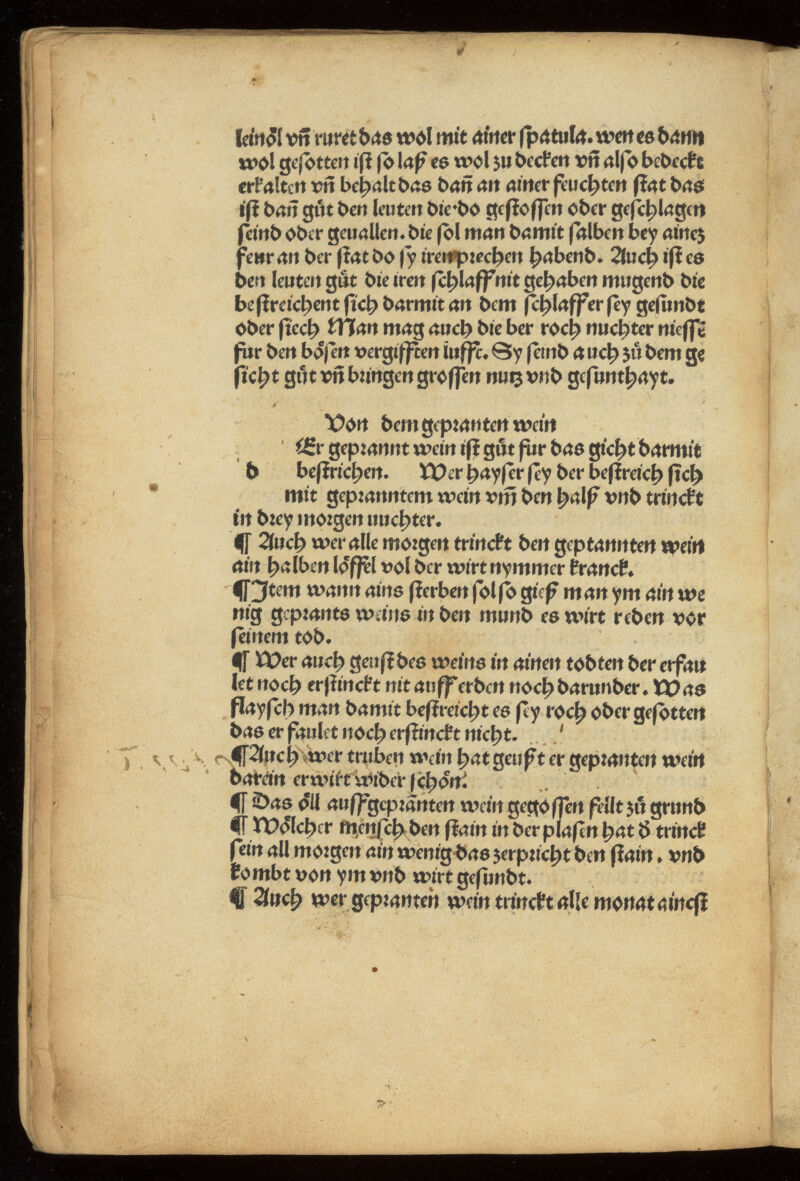 leinöl vñ ruret das wol mit ainer spatula. wen es dann
wol gesotten ist so laß es wol zu decken vñ also bedeckt
erkalten vñ behalt das dañ an ainer feuchten stat das
ist dañ gůt den leuten die do gestossen oder geschlagen
seind oder geuallen. die sol man damit salben bey ainez
feur an der stat do sy iren prechen habend. Auch ist es
den leuten gůt die iren schlaff nit gehaben mugend die
bestreichent sich darmit an dem schlaff er sey gesundt
oder siech Man mag auch die ber roch nuchter niessē
für den bösen vergifften luffte. Sy seind auch zů dem ge
sicht gůt vñ bringen grossen nutz vnd gesunthayt.
Von dem gepranten wein
d Er geprannt wein ist gůt für das gicht darmit
bestrichen. Wer hayser sey der bestreich sich
mit geprantem wein vm̄ den halß vnd trinckt
in drey morgen nuchter.
¶ Auch wer alle morgen trinckt den geprannten wein
ain halben löffel vol der wirt nymmer kranck.
¶ Item wann ains sterben sol so gieß man ym ain we
nig geprants weins in den mund es wirt reden vor
seinem tod.
¶ Wer auch geust des weins in ainen todten der erfau
let noch erstinckt nit auff erden noch darunder. Was
flaysch man damit bestreicht es sey roch oder gesotten
das er faulet noch erstinckt nicht.
¶ Auch wer truben wein hat geußt er gepranten wein
darein er wirt wider schön.
¶ Das öll auff gepranten wein gegossen fellt zů grund
¶ Wölcher mensch den stain in der plasen hat d̕ trinck
sein all morgen ain wenig das zerpricht den stain. vnd
kombt von ym vnd wirt gesundt.
¶ Auch wer gepranten wein trinckt alle monat ainest